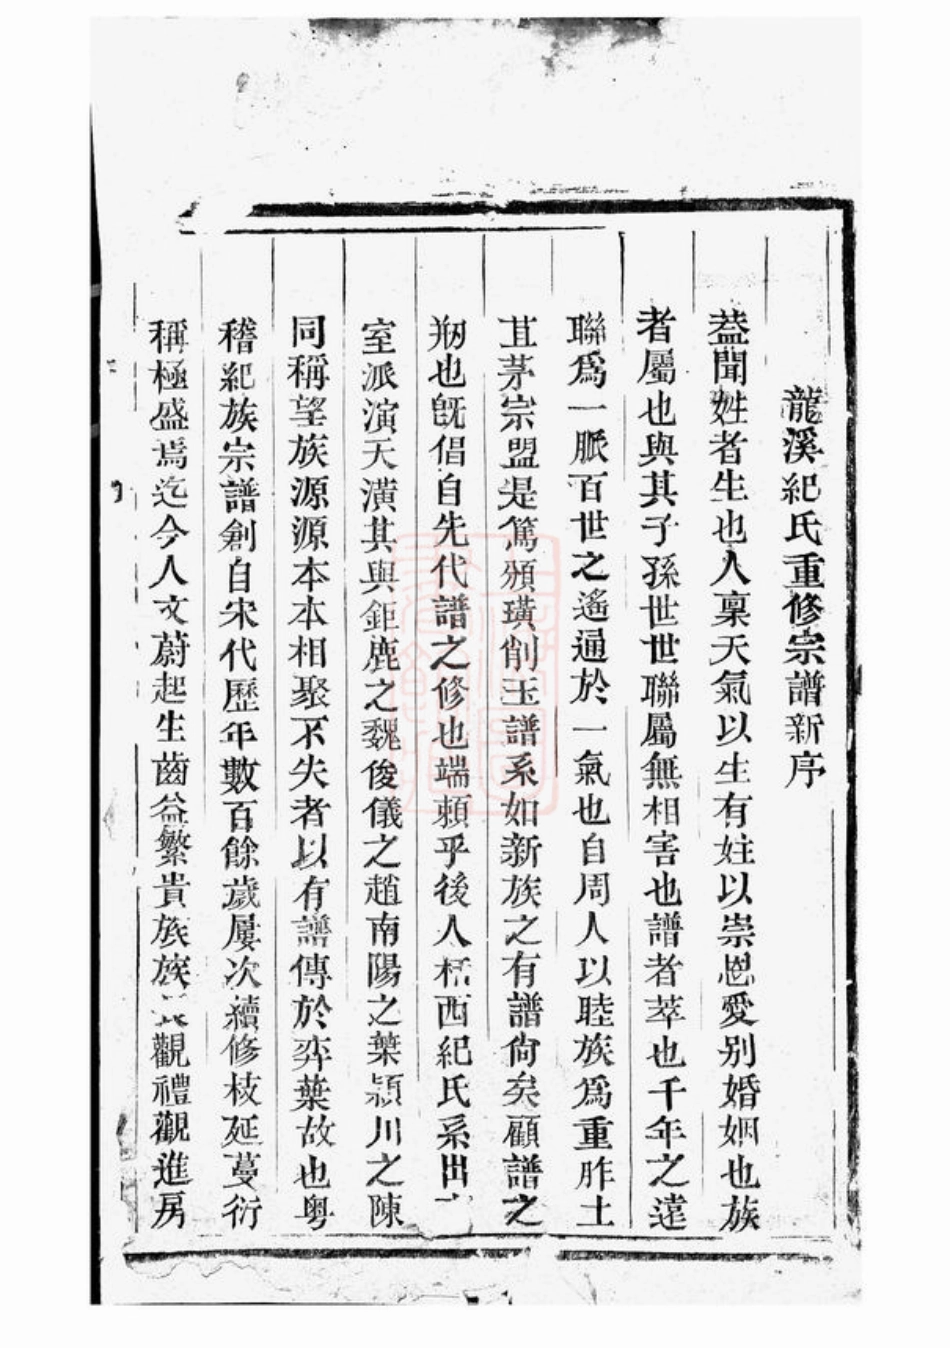 龍溪紀氏重修宗譜新序
葢聞姓者生也人稟天氣以生有姓以崇恩愛别婚姻也族
者屬也與其子孫世世聯屬無相害也譜者萃也千年之遠
聯爲一脈百世之遙通於一氣也自周人以睦族爲重胙土
苴茅宗盟是篤頒璜削玉譜系如新族之有譜尙矣顧譜之
剏也旣倡自先代譜之修也端賴乎後人栝西紀氏系出
室派演天潢其與鉅鹿之魏俊儀之趙南陽之葉潁川之陳
同稱望族源源本本相聚不失者以有譜傳於弈葉故也粤
稽紀族宗譜創自宋代歷年數百餘歲屢次續修枝延蔓衍
稱極盛焉迄今人文蔚起生齒益繁貴族族長觀禮觀進房